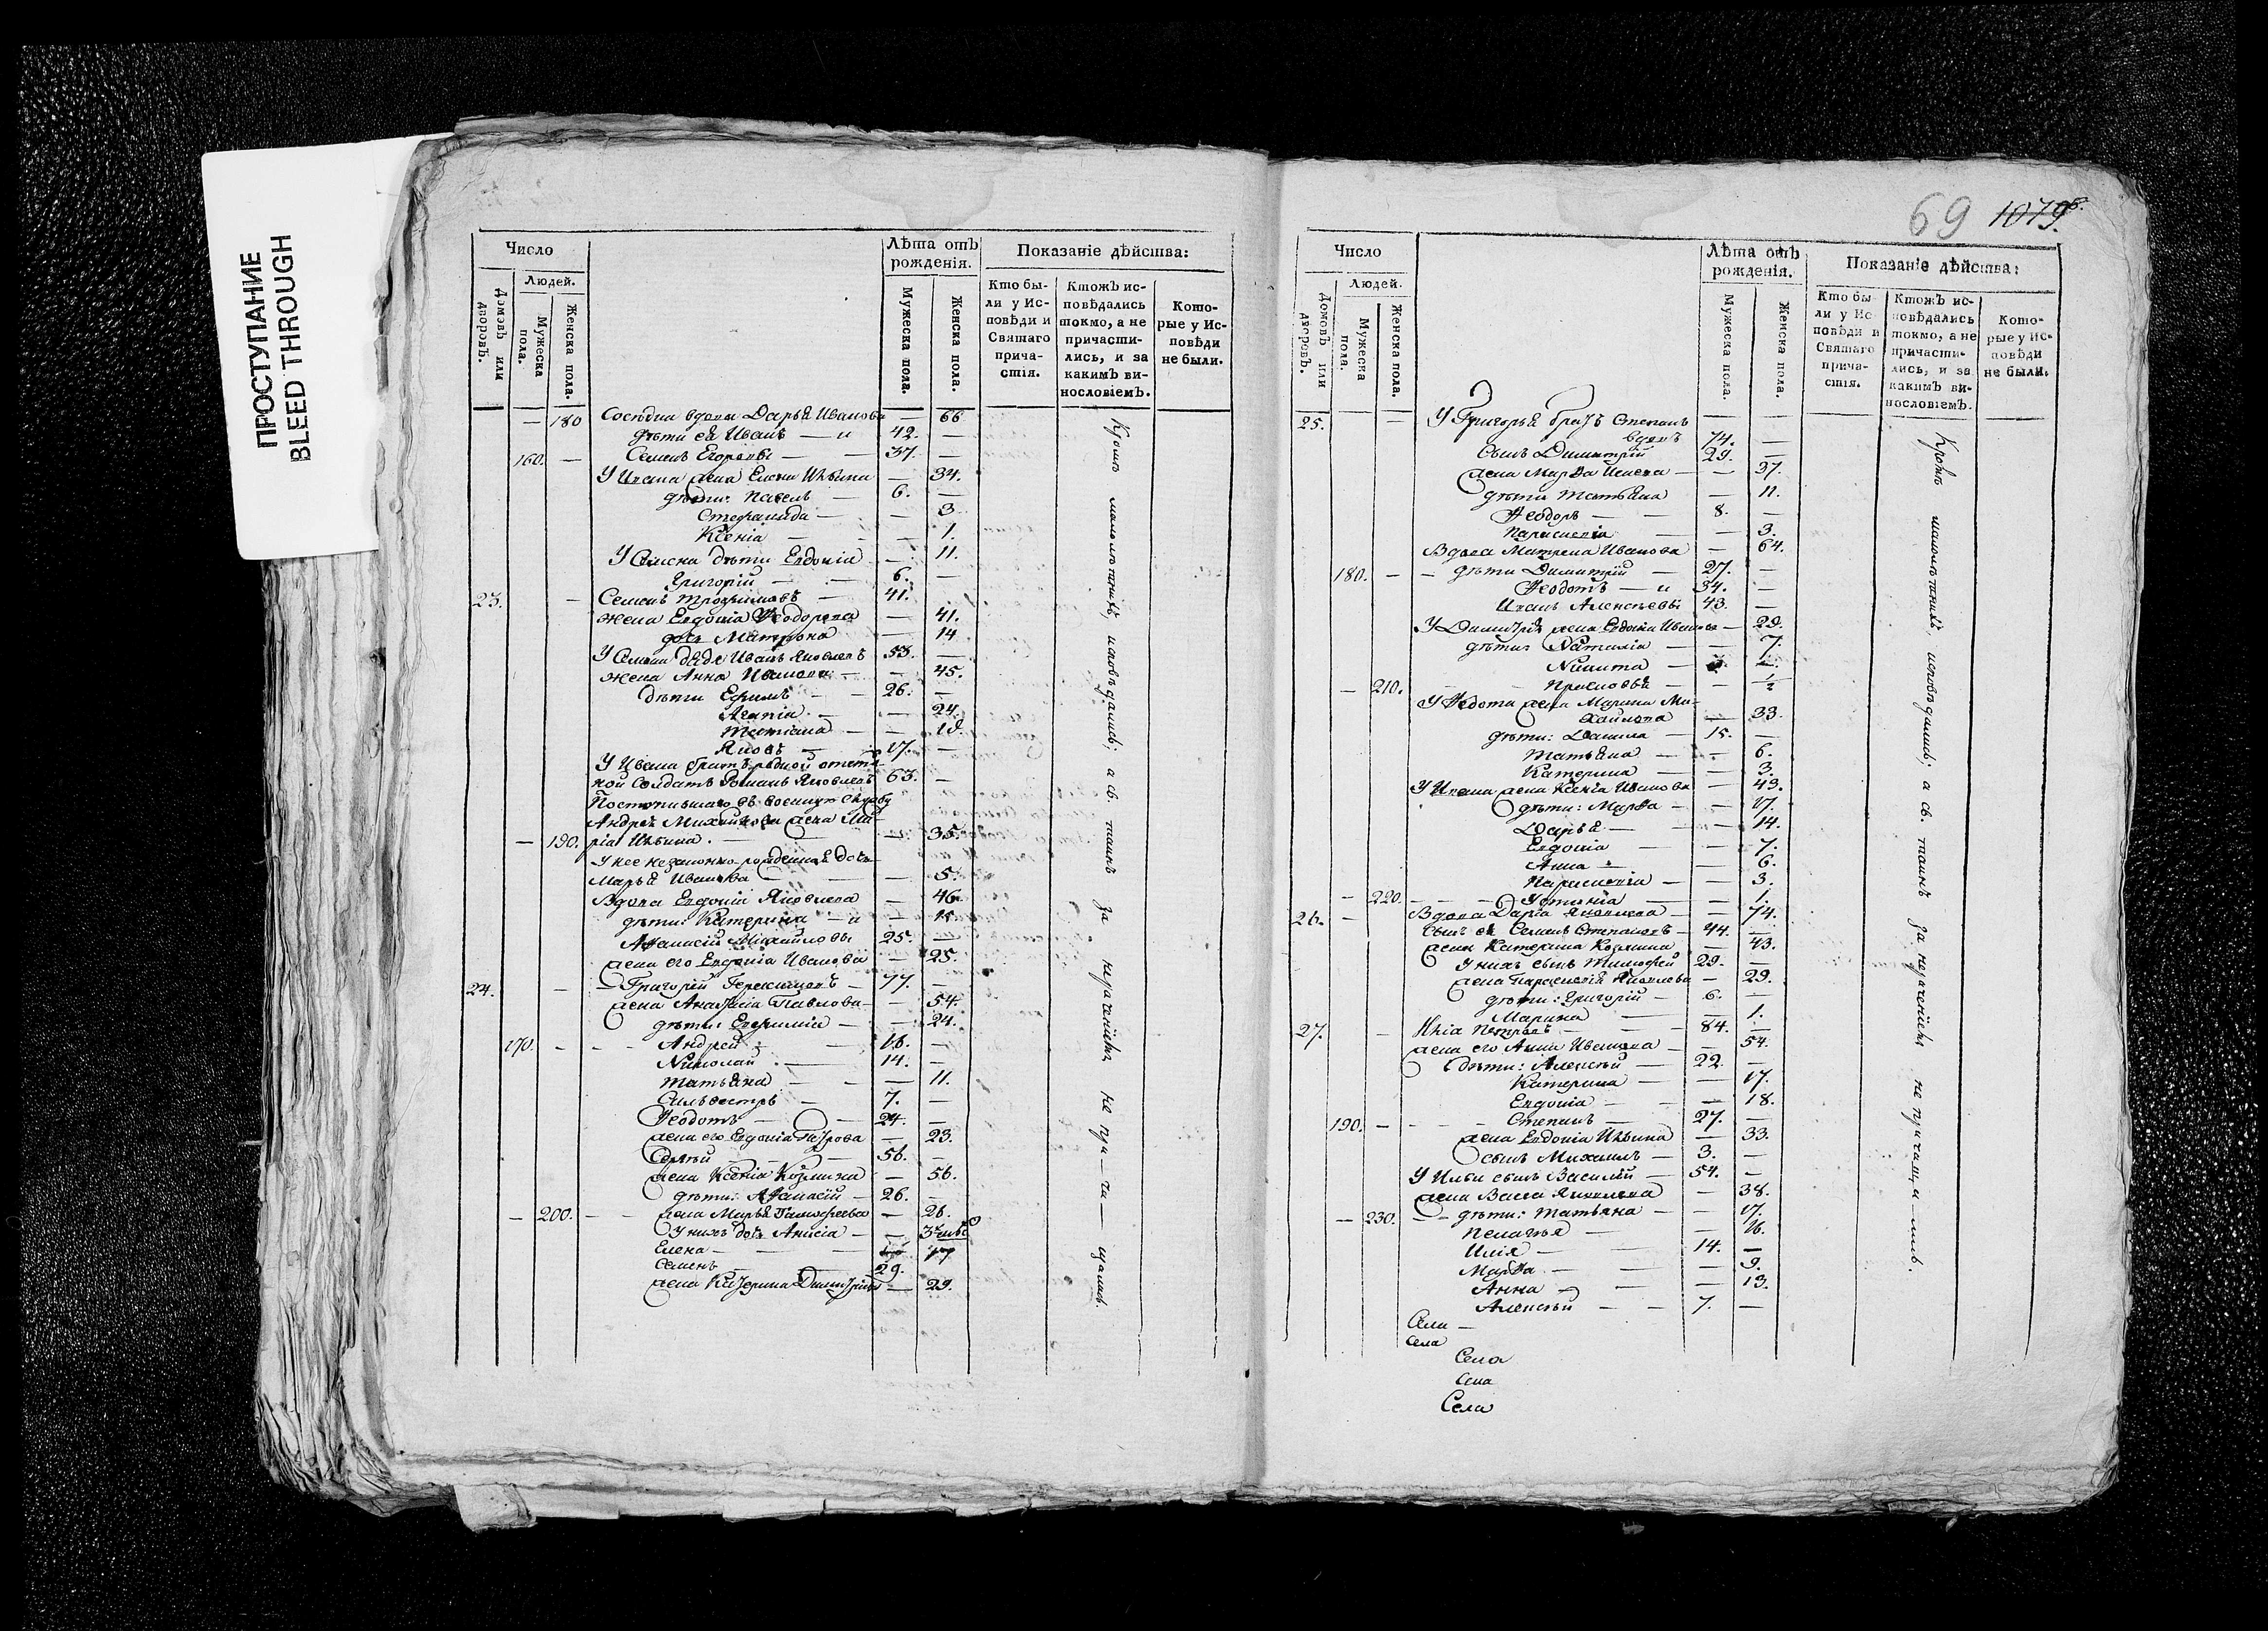 ПРОСТУПАНИЕ
BLEED THROUGH
Число
Людей.
Домовъ или дворовъ.
Мужеска пола.
Женска пола.
Лѣта отъ рожденія.
Мужеска пола.
Женска пола.
Показаніе дѣйства:
Кто были у Исповѣди и Святаго причастія.
Ктожъ исповѣдались токмо, а не причастились, и за какимъ винословіемъ.
Которые у Исповѣди не были.
— 180 Сосѣдка вдова Дарья Иванова — 66
дѣти ея Иванъ — и 42. —
160. — Семенъ Егоровы — 37. —
У Ивана жена Елена Ильина — 34.
дѣти: Павелъ — 6. —
Стефанида — — 3
Ксенія — — 1.
У Семена дѣти Евдокія — 11.
Григорій — — 6. —
23. — Семенъ Трофимовъ — 41.
жена Евдокія Ѳеодорова — 41.
дочь Матрона — 14
У Семена дядя Иванъ Яковлевъ 53. —
жена Анна Иванова — — 45.
дѣти Ефимъ — — 26. —
Агапіа — — 24
Татіана — — 18.
Яковъ — 17. —
У Ивана братъ родной отстав-
ной солдатъ Романъ Яковлевъ 63. —
Поступившаго въ военную службу
Андрея Михайлова жена Ма-
— 190. ріа Ильина. — — 35.
У нее незаконно-рожденная дочь
Марья Иванова — — 5.
Вдова Евдокіи Яковлева — 46.
дѣти: Катерина — и — 15.
Аѳанасій Михайловы 25. —
жена его Евдокіа Иванова — 25.
24. — — Григорій Герасимовъ — 77. —
жена Анастасіа Павлова — — 54.
дѣти: Евфиміа — — 24.
170. — — Андрей — 16. —
Николай — 14. —
Татьяна — — 11.
Сильвестръ — 7. —
Ѳеодотъ — 24. —
жена его Евдокіа Петрова — 23.
Сергѣй — 56. —
жена Ксенія Козмина — 56.
дѣти: Аѳанасій — 26. —
— 200. — — жена Марья Тимофеева — 26.
У нихъ дочь Анисіа — —
Елена — —
Семенъ — 29.
жена Катерина Димитріева — 29.
Кромѣ малолѣтныхъ, исповѣдались; а св. таинъ за нераченіемъ не при-ча-щались.
69 1079
Число
Людей.
Домовъ или дворовъ.
Мужеска пола.
Женска пола.
Лѣта отъ рожденія.
Мужеска пола.
Женска пола.
Показаніе дѣйства:
Кто были у Исповѣди и Святаго причастія.
Ктожъ исповѣдались токмо, а не причастились, и за какимъ винословіемъ.
Которые у Исповѣди не были.
25. — У Григорья братъ Степанъ
вдовъ 74. —
Сынъ Димитрій 29. —
жена Марѳа — — 27.
дѣти Татьяна — 11.
Ѳеодоръ — — 8. —
Параскевіа — 3.
Вдова Матрена Иванова — 64.
180. — — дѣти Димитрій — 27. —
Ѳеодотъ — и 34. —
Иванъ Алексѣевы 43. —
У Димитрія жена Евдокіа Иванова — 29.
дѣти: Наталіа — — 7.
Никита —
— 210. Прасковья — — ½
У Ѳедота жена Марина Ми-
хайлова — 33.
дѣти: Данила — 15. —
Татьяна — — 6.
Катерина — — 3.
У Ивана жена Ксеніа Иванова — 43.
дѣти: Марѳа — — 17.
Дарья — — 14.
Евдокіа — — 7.
Анна — — 6.
Параскевіа — — 3.
— 220. — — — Устиніа — — 1.
26. — Вдова Даріа Яковлева — — 74.
Сынъ ея Семенъ Степановъ — 44. —
жена Катерина Козмина — 43.
У нихъ сынъ Тимофей 29. —
жена Параскевіа Яковлева — 29.
дѣти: Григорій — 6. —
Марина — — 1.
27. — Иліа Петровъ — 84. —
жена его Анна Иванова — — 54.
дѣти: Алексѣй — 22. —
Катерина — — 17.
Евдокіа — — 18.
190. — — — Степанъ — 27. —
жена Евдокіа Ильина — 33.
сынъ Михаилъ — 3. —
У Ильи сынъ Василій — 54. —
жена Васса Яковлева — 38.
— 230. — — дѣти: Татьяна — — 17.
Пелагья — — 16.
Илія — 14. —
Марѳа — — 9.
Анна — — 13.
Алексѣй — — 7. —
Села —
Села
Села
Села
Села
Кромѣ малолѣтныхъ, исповѣдались; а св. таинъ за нераченіемъ не причаща-лись.